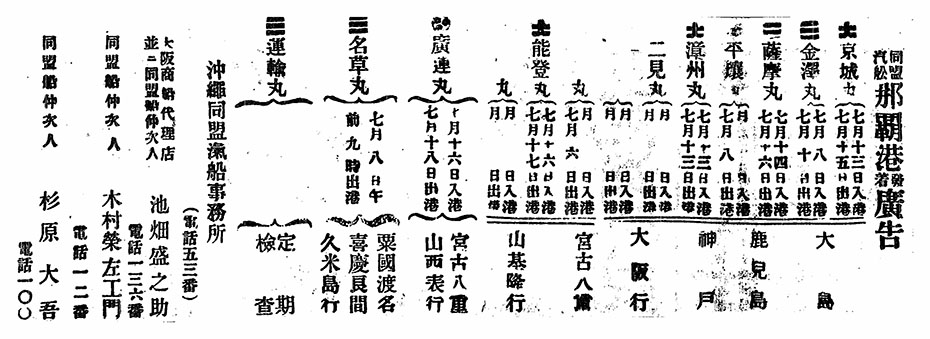 同盟汽舩那覇港發着廣告
京城丸 七月十三日入港 七月十五日出港
金澤丸 七月八日入港 七月十日出港
大島
薩摩丸 七月十四日入港 七月十六日出港
平壤丸 月 日入港 七月八日出港
鹿兒島
漳州丸 七月十三日入港 七月十三日出港
神戸
二見丸 月 日入港 月 日出港
丸 月 日入港 月 日出港
大阪行
丸 七月六日入港 日出港
宮古八重
能登丸 七月十六日入港 七月十七日出港
丸 月 日入港 月 日出港
山基隆行
廣運丸 七月十六日入港 七月十八日出港
宮古八重
山西表行
名草丸 七月八日午前九時出港
粟國渡名
喜慶良間
久米島行
運輸丸
定期
檢査
沖繩同盟滊船事務所
(電話五三番)
大阪商船代理店
並ニ同盟船仲次人 池畑盛之助
電話一三六番
同盟船仲次人 木村榮左工門
電話一二番
同盟船仲次人 杉原大吾
電話一〇〇